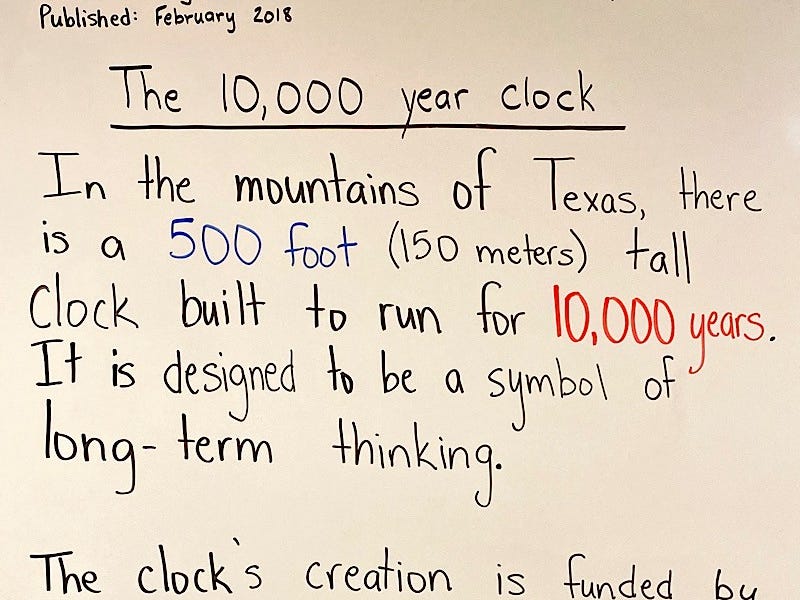 Published: February 2018
The 10,000 year clock
In the mountains of Texas, there
is a 500 foot (150 meters) tall
clock built to run for 10,000 years.
It is designed to be a symbol of
long-term thinking.
The clock's creation is funded by